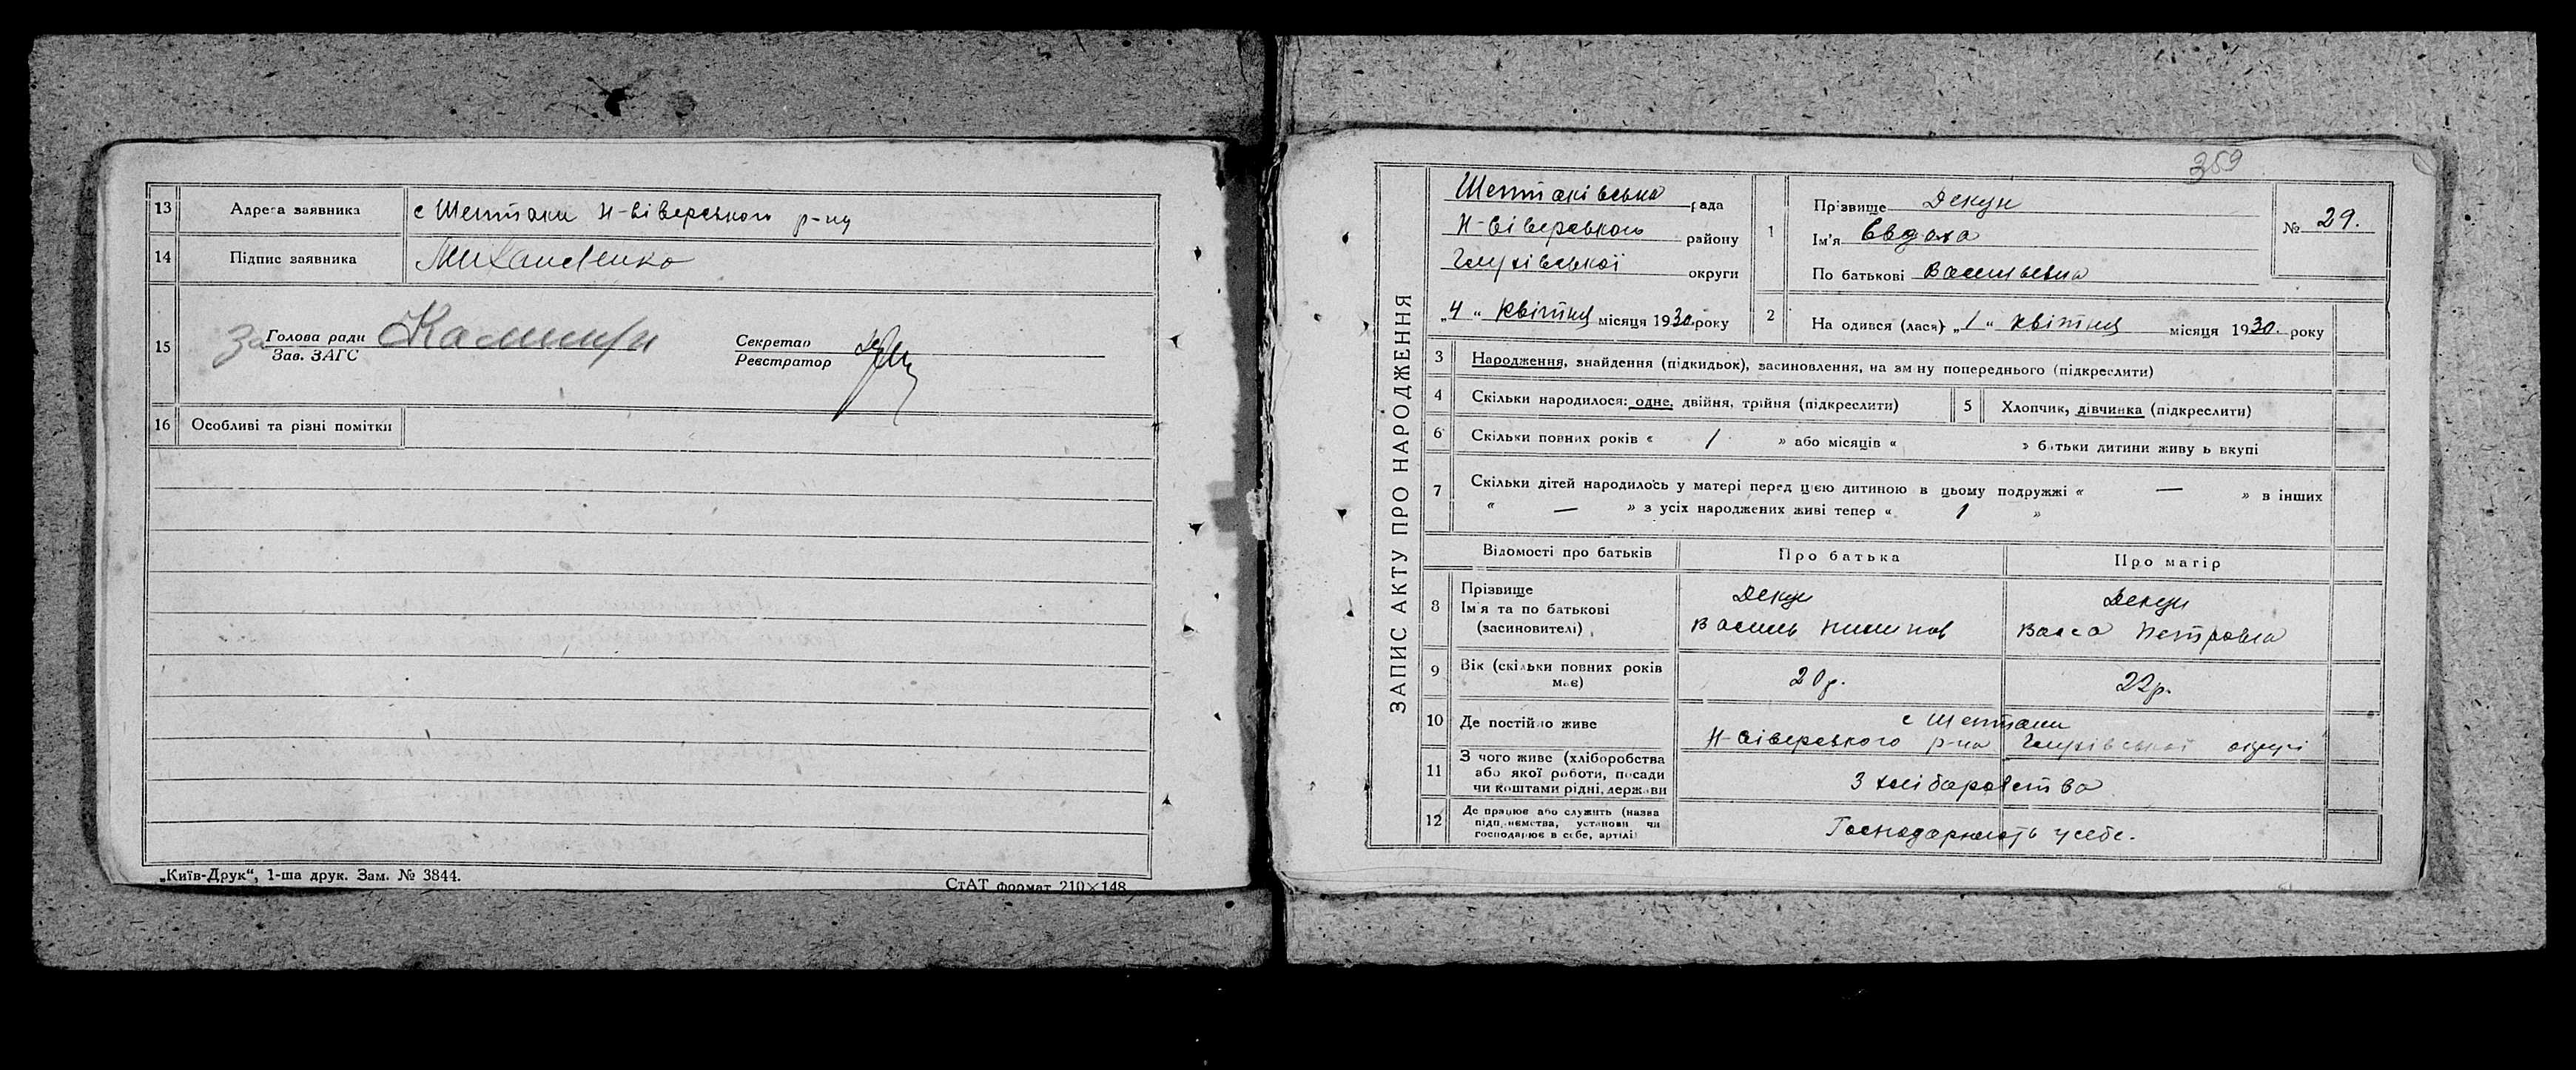 13 Адреса заявника с Шептаки Н-Сіверського р-ну
14 Підпис заявника
15 За Голова ради
Зав. ЗАГС
Секретар
Реєстратор
16 Особливі та різні помітки
„Київ-Друк“, 1-ша друк. Зам. № 3844.
СтАТ формат 210×148
359
ЗАПИС АКТУ ПРО НАРОДЖЕННЯ
Шептаківська рада
Н-Сіверського району
Глухівської округи
„4“ квітня місяця 1930 року
1 Прізвище Декун
Ім'я Євдоха
По батькові Васильевна
№ 29.
2 Народився (лася) „1“ квітня місяця 1930. року
3 Народження, знайдення (підкидьок), засиновлення, на зміну попереднього (підкреслити)
4 Скільки народилося: одне, двійня, трійня (підкреслити)
5 Хлопчик, дівчинка (підкреслити)
6 Скільки повних років « 1 » або місяців « » батьки дитини живуть вкупі
7 Скільки дітей народилось у матері перед цією дитиною в цьому подружжі « — » в інших
« — » з усіх народжених живі тепер « 1 »
Відомості про батьків Про батька Про матір
8 Прізвище
Ім'я та по батькові
(засиновителі)
Декун
Василь
Декун
Васса Петровна
9 Вік (скільки повних років
має)
20р.
22р.
10 Де постійно живе
с Шептаки
Н-Сіверського р-на Глухівської округи
11 З чого живе (хліборобства
або якої роботи, посади
чи коштами рідні, держави
З хліборобства
12 Де працює або служить (назва
підприємства, установи чи
господарює в себе, артілі)
Господарюють у себе.